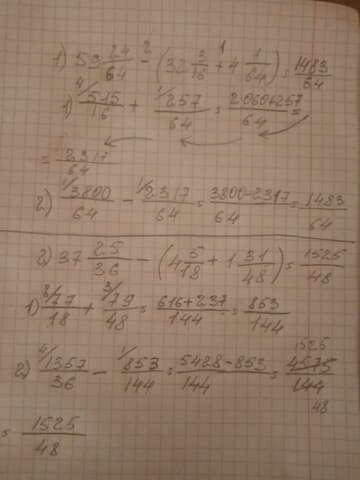 1) 53 24/64 - (32 3/16 + 4 1/64) = 1483/64
1) 515/16 + 257/64 = 2060+257/64 =
= 2317/64
2) 3800/64 - 2317/64 = 3800-2317/64 = 1483/64
2) 37 25/36 - (4 5/18 + 1 31/48) = 1525/48
1) 77/18 + 79/48 = 616+237/144 = 853/144
2) 1357/36 - 853/144 = 5428-853/144 = 4575/144
= 1525/48